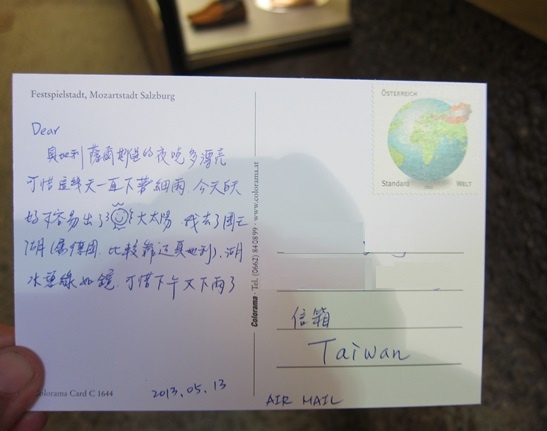 Festspielstadt, Mozartstadt Salzburg
Dear
奧地利 薩爾斯堡的夜晚多漂亮
可惜這幾天一直下著細雨 今天的天
好不容易出了 大太陽 我去了國王
湖(屬德國, 比較靠近奧地利), 湖
水碧綠如鏡, 可惜下午又下雨了
2013.05.13
Colorama Card C 1644
Colorama · Tel. (0662) 84 0899 · www.colorama.at
ÖSTERREICH
Standard
WELT
信箱
Taiwan
AIR MAIL